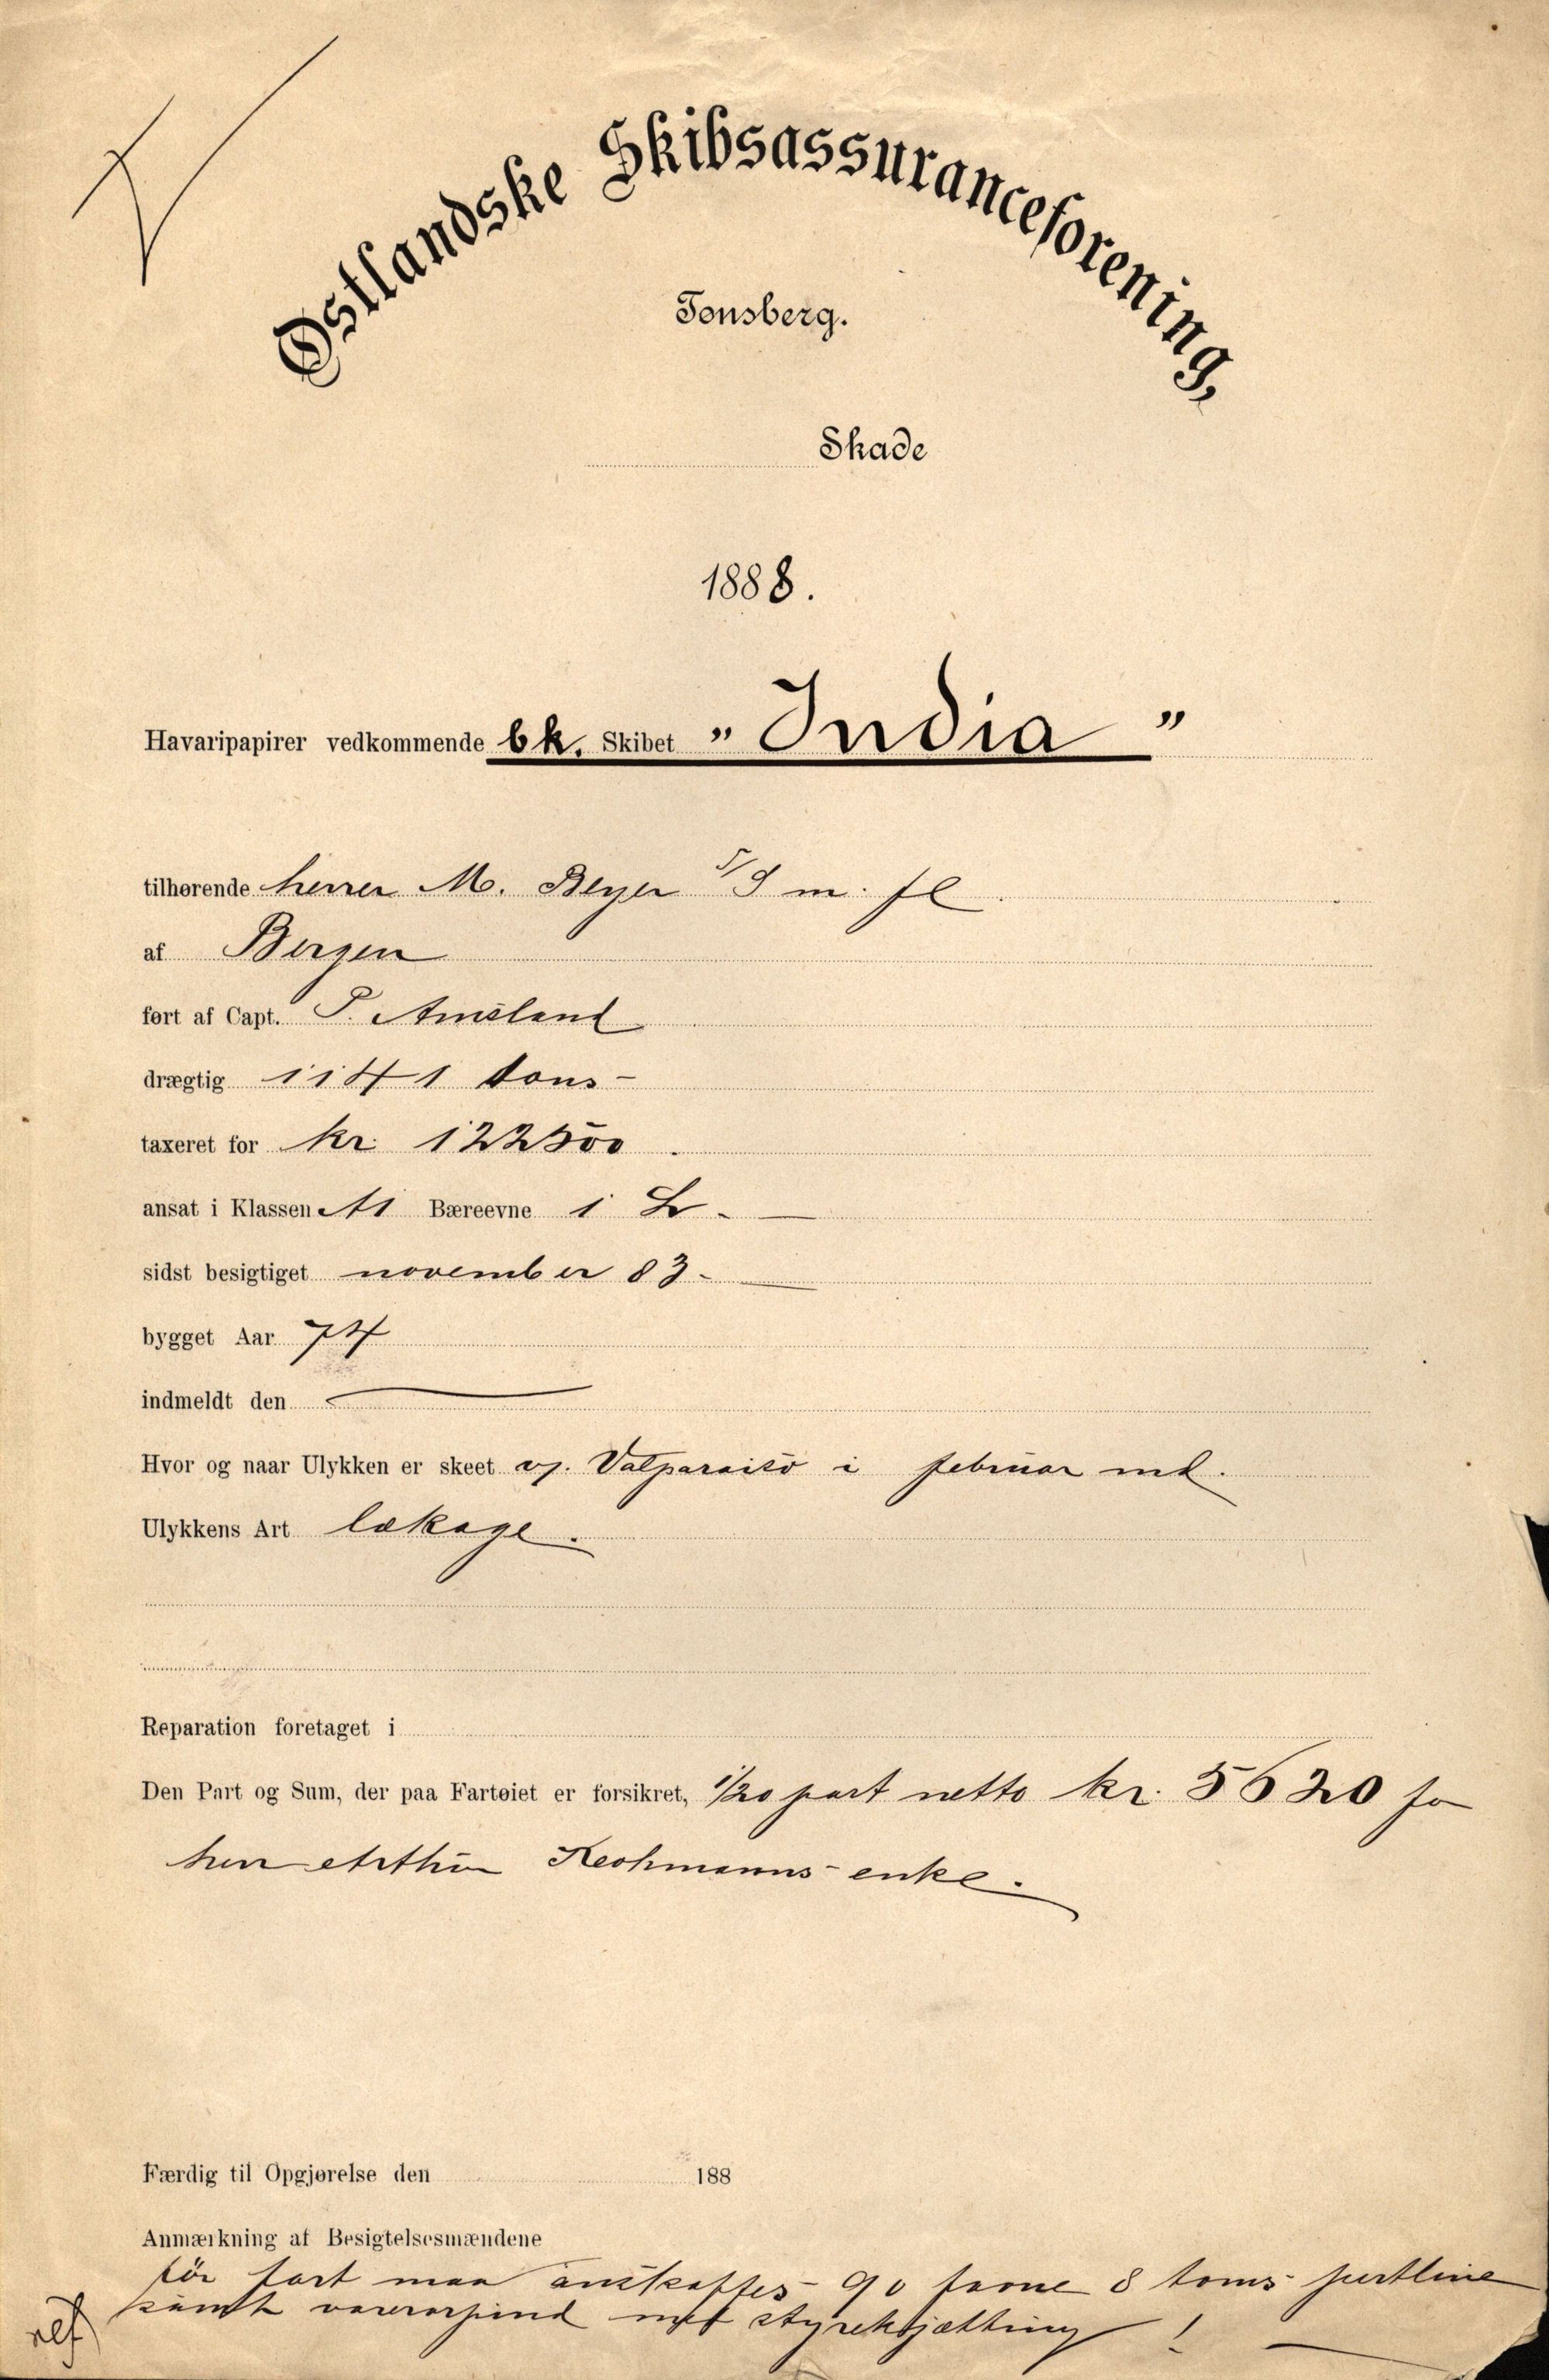 Østlandske Skibsassuranceforening,
Tønsberg.
Skade
1888.
Havaripapirer vedkommende bk. Skibet „India"
tilhørende herrer M. Beyer m. fl.
af Bergen
ført af Capt. P. Amsland
drægtig 1141 tons
taxeret for kr. 122500.
ansat i Klassen A1 Bæreevne 1
sidst besigtiget november 83.
bygget Aar 74
indmeldt den
Hvor og naar Ulykken er skeet Valparaiso i februar md.
Ulykkens Art lækage.
Reparation foretaget i
Den Part og Sum, der paa Fartøiet er forsikret, 1/20 part netto kr. 5620 for
herr enke.
Færdig til Opgjørelse den 188
Anmærkning af Besigtelsesmændene
før fart maa anskaffes 90 favne 8 toms
samt styrekjætting !